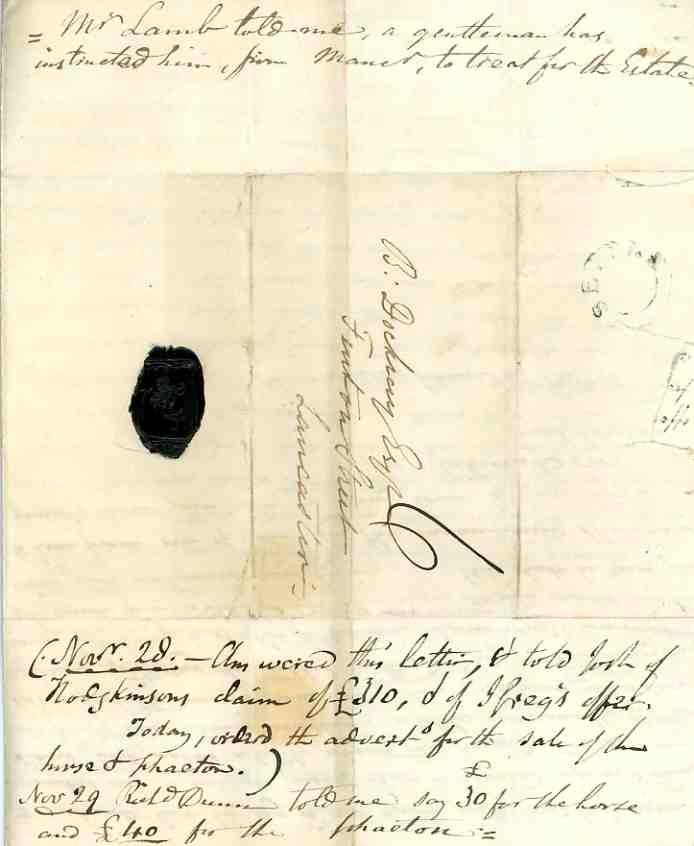 = Mr Lamb told me, a gentleman has
instructed him, from Manc r, to treat for the Estate.
B. Dockray Esqr
Fenton Street
Lancaster.
6
SE
(. Novr. 28. — Answered this letter, & told Josh of
Hodgkinsons claim of £310, & of offer.
Today, order'd the advert s for the sale of the
horse & phaeton. )
Nov 29 Richd Dunn told me say £30 for the horse
and £40 for the phaeton =